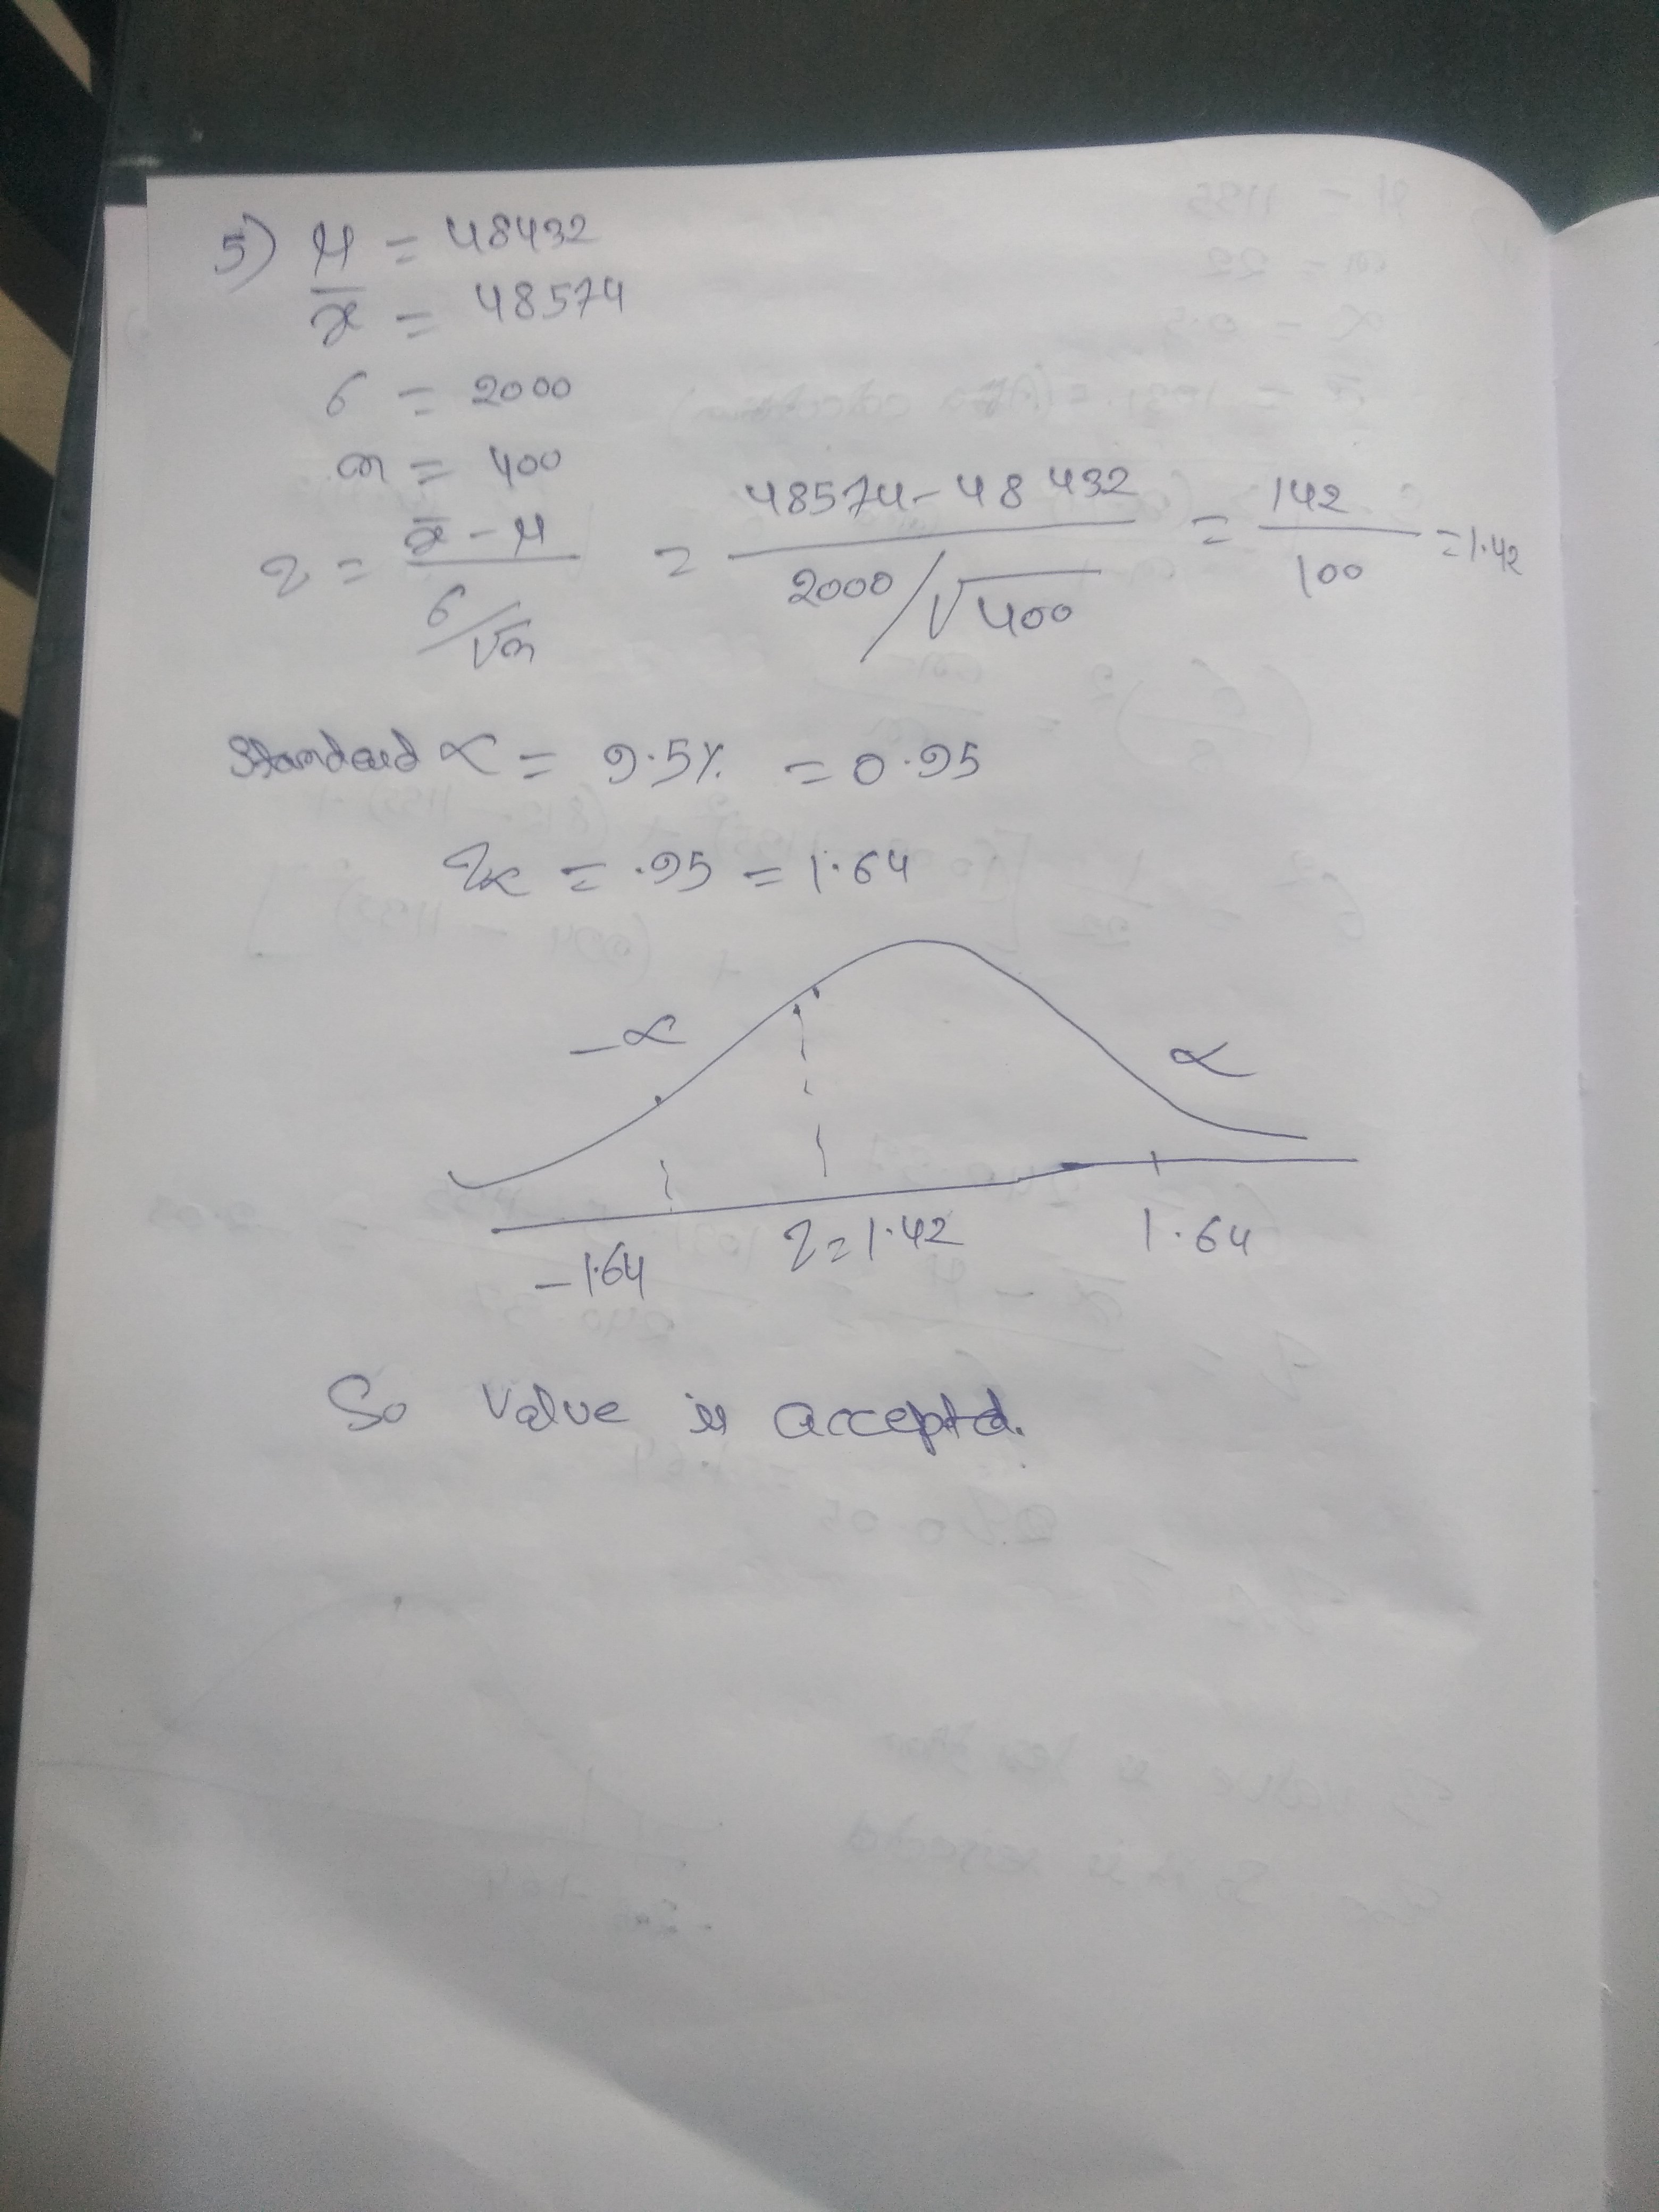 5) μ = 48432
x̄ = 48574
σ = 2000
n = 400
z = x̄ - μ / σ/√n = 48574 - 48432 / 2000/√400 = 142 / 100 = 1.42
Standard α = 9.5% = 0.95
Zα = .95 = 1.64
-α α
-1.64 z = 1.42 1.64
So value is accepted.